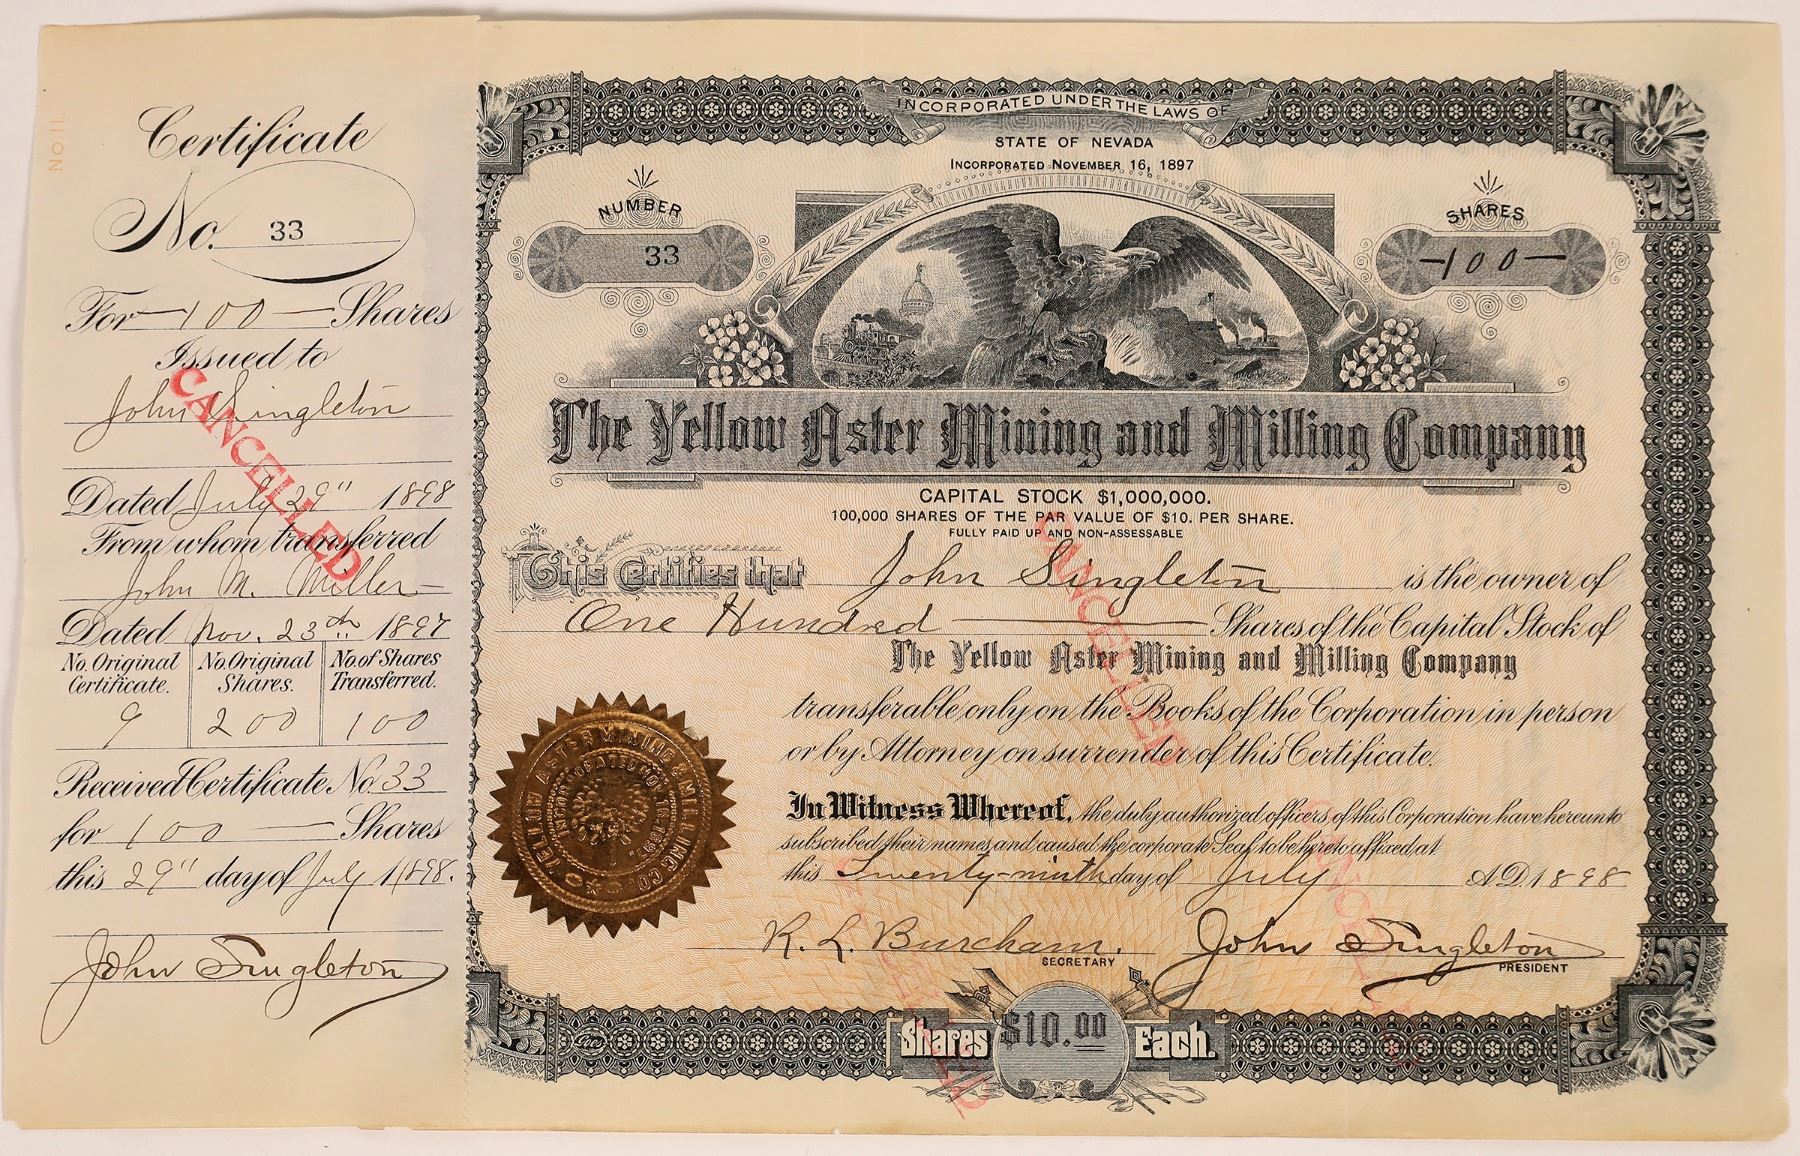 No. 11.
Certificate
No. 33
For — 100 — Shares
Issued to
John Singleton
CANCELLED
Dated July 29" 1898
From whom transferred
John M. Miller —
Dated Nov. 23th 1897
No. Original Certificate. No. Original Shares. No. of Shares Transferred.
9 200 100
Received Certificate No. 33
for 100 — Shares
this 29" day of July 1898.
John Singleton
INCORPORATED UNDER THE LAWS OF
STATE OF NEVADA
INCORPORATED NOVEMBER 16, 1897
NUMBER
33
SHARES
—100—
The Yellow Aster Mining and Milling Company
CAPITAL STOCK $1,000,000.
100,000 SHARES OF THE PAR VALUE OF $10. PER SHARE.
FULLY PAID UP AND NON-ASSESSABLE
This Certifies that John Singleton is the owner of
One Hundred — Shares of the Capital Stock of
The Yellow Aster Mining and Milling Company
transferable only on the Books of the Corporation in person
or by Attorney on surrender of this Certificate.
CANCELLED
In Witness Whereof, the duly authorized officers of this Corporation have hereunto
subscribed their names and caused the corporate Seal to be hereto affixed at
this Twenty-ninth day of July A.D. 1898
CANCELLED
CANCELLED
YELLOW ASTER MINING & MILLING CO.
INCORPORATED NOV. 16, 1897.
R. L. Burcham.
SECRETARY
John Singleton
PRESIDENT
Shares $10.00 Each.